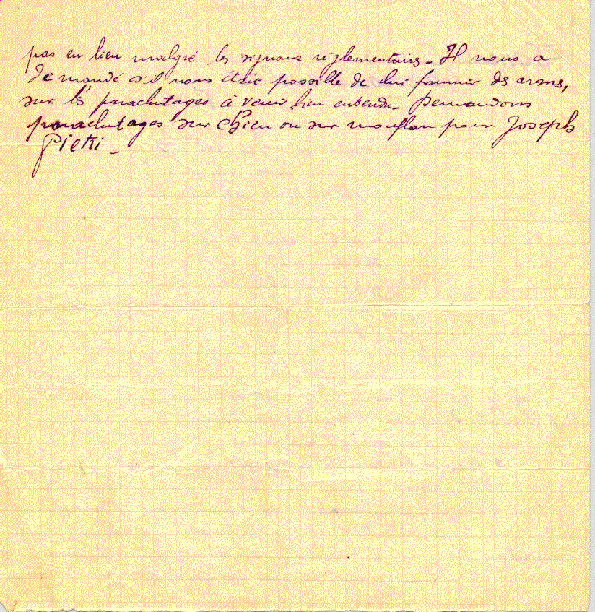 pas eu lieu malgré les signaux réglementaires. Il nous a
demandé s'il nous était possible de lui fournir des armes,
sur les parachutages à venir bien entendu. Demandons
parachutages sur Chien ou sur mouflon pour Joseph
Pietri –